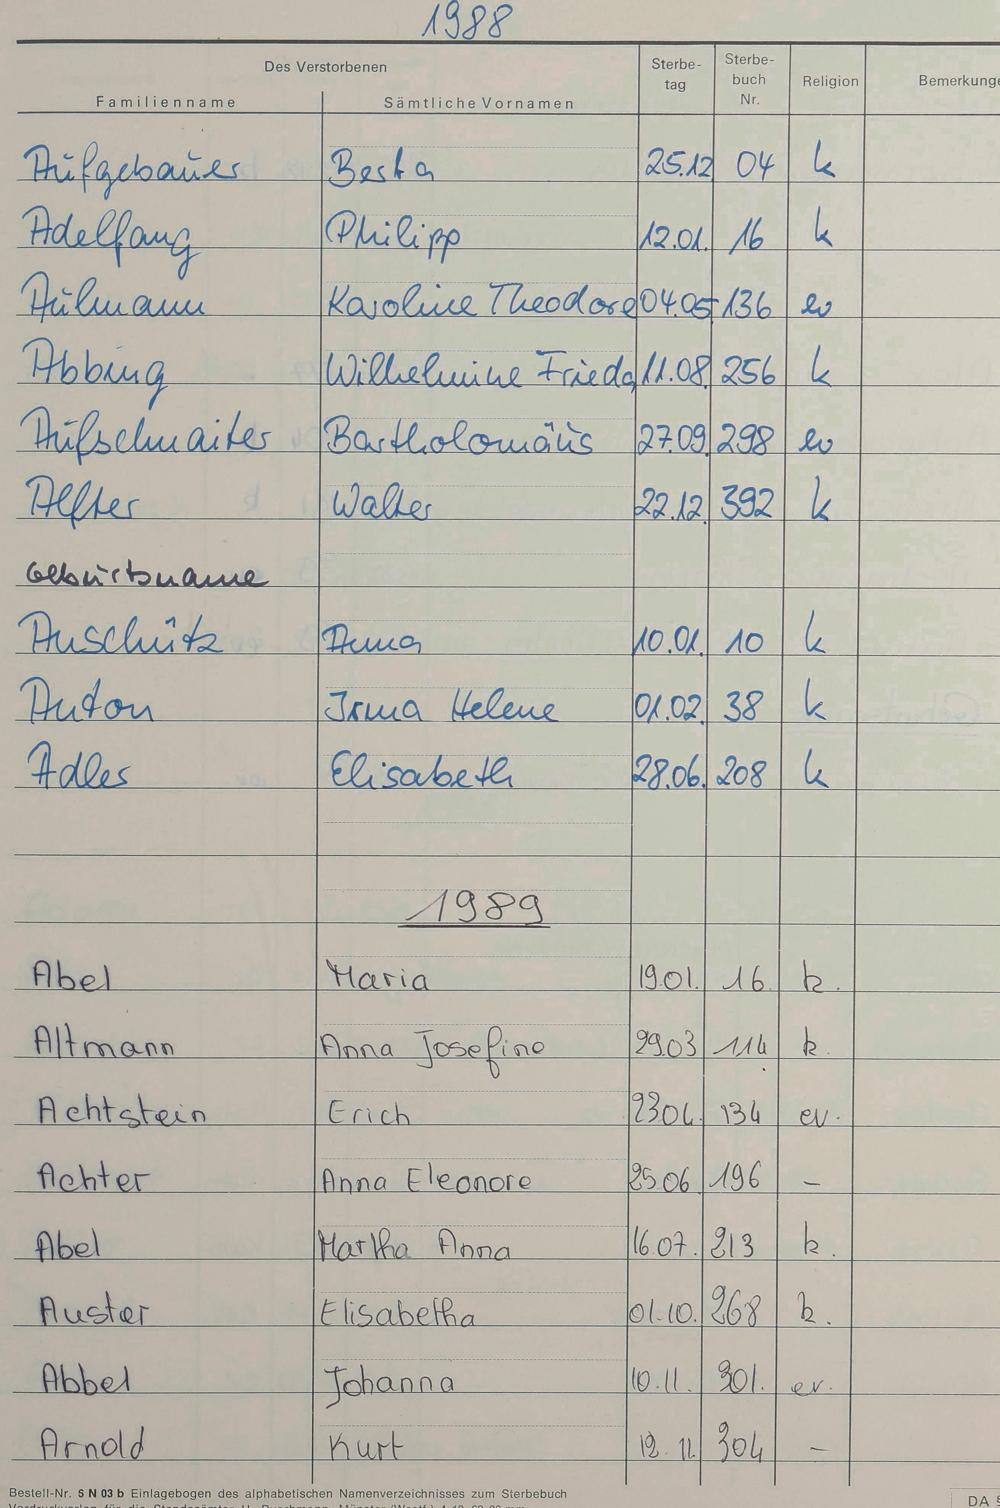 1988
Des Verstorbenen
Sterbe-
tag
Sterbe-
buch
Nr.
Religion
Familienname Sämtliche Vornamen
Aufgebauer Berta 25.12 04 k
Adelfang Philipp 12.01. 16 k
Aulmann Karoline Theodore 04.05 136 ev
Abbing Wilhelmine Frieda 11.08. 256 k
Aufschnaiter Bartholomäus 27.09. 298 ev
Alfter Walter 22.12. 392 k
Geburtsname
Anschütz Anna 10.01. 10 k
Anton Irma Helene 01.02. 38 k
Adler Elisabeth 28.06. 208 k
1989
Abel Maria 19.01. 16. k.
Altmann Anna Josefine 29.03 114 k.
Achtstein Erich 23.04. 134 ev.
Achter Anna Eleonore 25.06 196 –
Abel Martha Anna 16.07. 213 k.
Auster Elisabetha 01.10. 268 k.
Abbel Johanna 10.11. 301. ev.
Arnold Kurt 12.11. 304 –
Bestell-Nr. S N 03 b Einlagebogen des alphabetischen Namenverzeichnisses zum Sterbebuch
DA